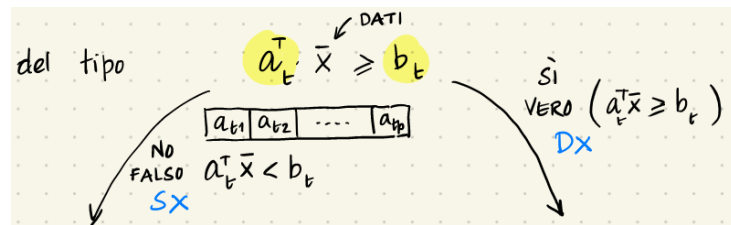 DATI
del tipo a_t^T x̄ ≥ b_t
a_t1 a_t2 .... a_tp
NO
FALSO a_t^T x̄ < b_t
SX
Sì
VERO (a_t^T x̄ ≥ b_t)
DX